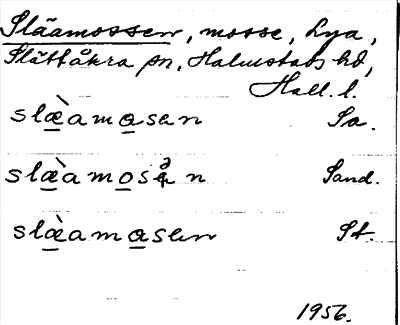 Släamossen, mosse, Lya,
Slättåkra sn, Halmstads hd,
Hall. l.
slæ̀amosen Sa.
slæ̀amosån Sand.
slæ̀amosen St.
1956.